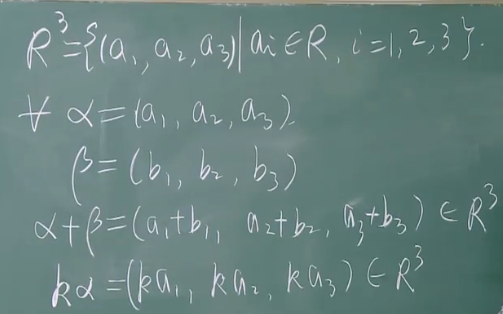 R³={(a₁, a₂, a₃)|aᵢ∈R, i=1, 2, 3}.
∀ α=(a₁, a₂, a₃).
β=(b₁, b₂, b₃)
α+β=(a₁+b₁, a₂+b₂, a₃+b₃) ∈ R³
kα=(ka₁, ka₂, ka₃) ∈ R³